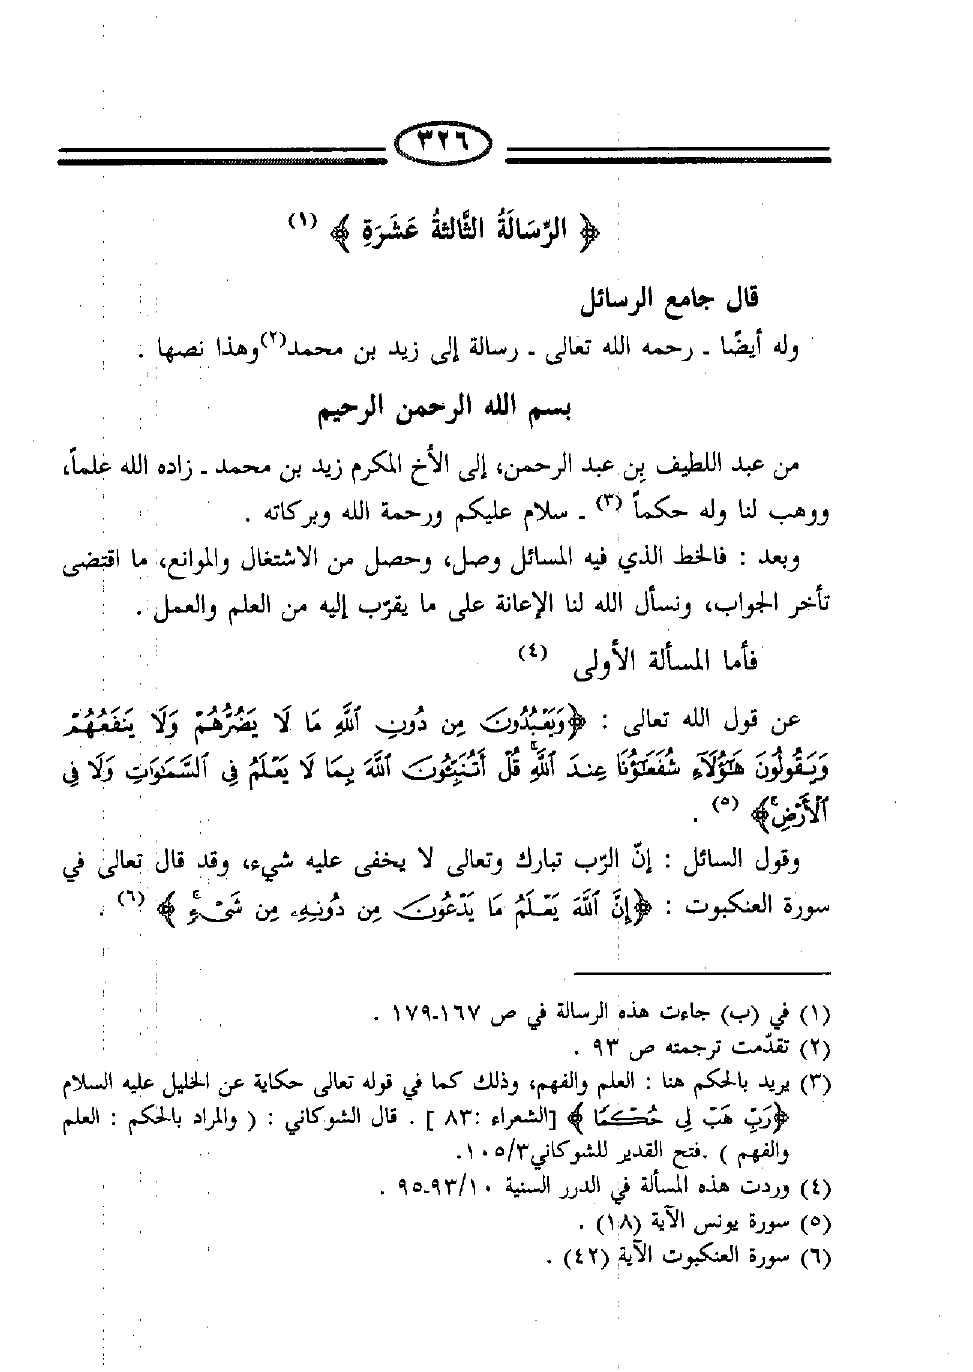 ٣٢٦
﴿ الرِّسَالَةُ الثَّالثةُ عَشَرَةِ ﴾ (١)
قال جامع الرسائل
وله أيضًا ـ رحمه الله تعالى ـ رسالة إلى زيد بن محمد(٢)وهذا نصها .
بسم الله الرحمن الرحيم
من عبد اللطيف بِن عبد الرحمن، إلى الأخ المكرم زيد بن محمد ـ زاده الله علماً،
ووهب لنا وله حكماً (٣) ـ سلام عليكم ورحمة الله وبركاته .
وبعد : فالخط الذي فيه المسائل وصل، وحصل من الاشتغال والموانع، ما اقتضى
تأخر الجواب، ونسأل الله لنا الإعانة على ما يقرّب إليه من العلم والعمل .
فأما المسألة الأولى (٤)
عن قول الله تعالى : ﴿وَيَعْبُدُونَ مِن دُونِ ٱللَّهِ مَا لَا يَضُرُّهُمْ وَلَا يَنفَعُهُمْ
وَيَقُولُونَ هَٰٓؤُلَآءِ شُفَعَٰٓؤُنَا عِندَ ٱللَّهِۚ قُلْ أَتُنَبِّـُٔونَ ٱللَّهَ بِمَا لَا يَعْلَمُ فِى ٱلسَّمَٰوَٰتِ وَلَا فِى
ٱلْأَرْضِۚ﴾ (٥) .
وقول السائل : إنّ الرّب تبارك وتعالى لا يخفى عليه شيء، وقد قال تعالى في
سورة العنكبوت : ﴿إِنَّ ٱللَّهَ يَعْلَمُ مَا يَدْعُونَ مِن دُونِهِۦ مِن شَىْءٍۚ ﴾ (٦) .
(١) في (ب) جاءت هذه الرسالة في ص ١٦٧-١٧٩ .
(٢) تقدّمت ترجمته ص ٩٣ .
(٣) يريد بالحكم هنا : العلم والفهم، وذلك كما في قوله تعالى حكاية عن الخليل عليه السلام
﴿رَبِّ هَبْ لِى حُكْمًا ﴾ [الشعراء :٨٣ ] . قال الشوكاني : ( والمراد بالحكم : العلم
والفهم ) .فتح القدير للشوكاني١٠٥/٣.
(٤) وردت هذه المسألة في الدرر السنية ٩٣/١٠-٩٥ .
(٥) سورة يونس الآية (١٨) .
(٦) سورة العنكبوت الآية (٤٢) .